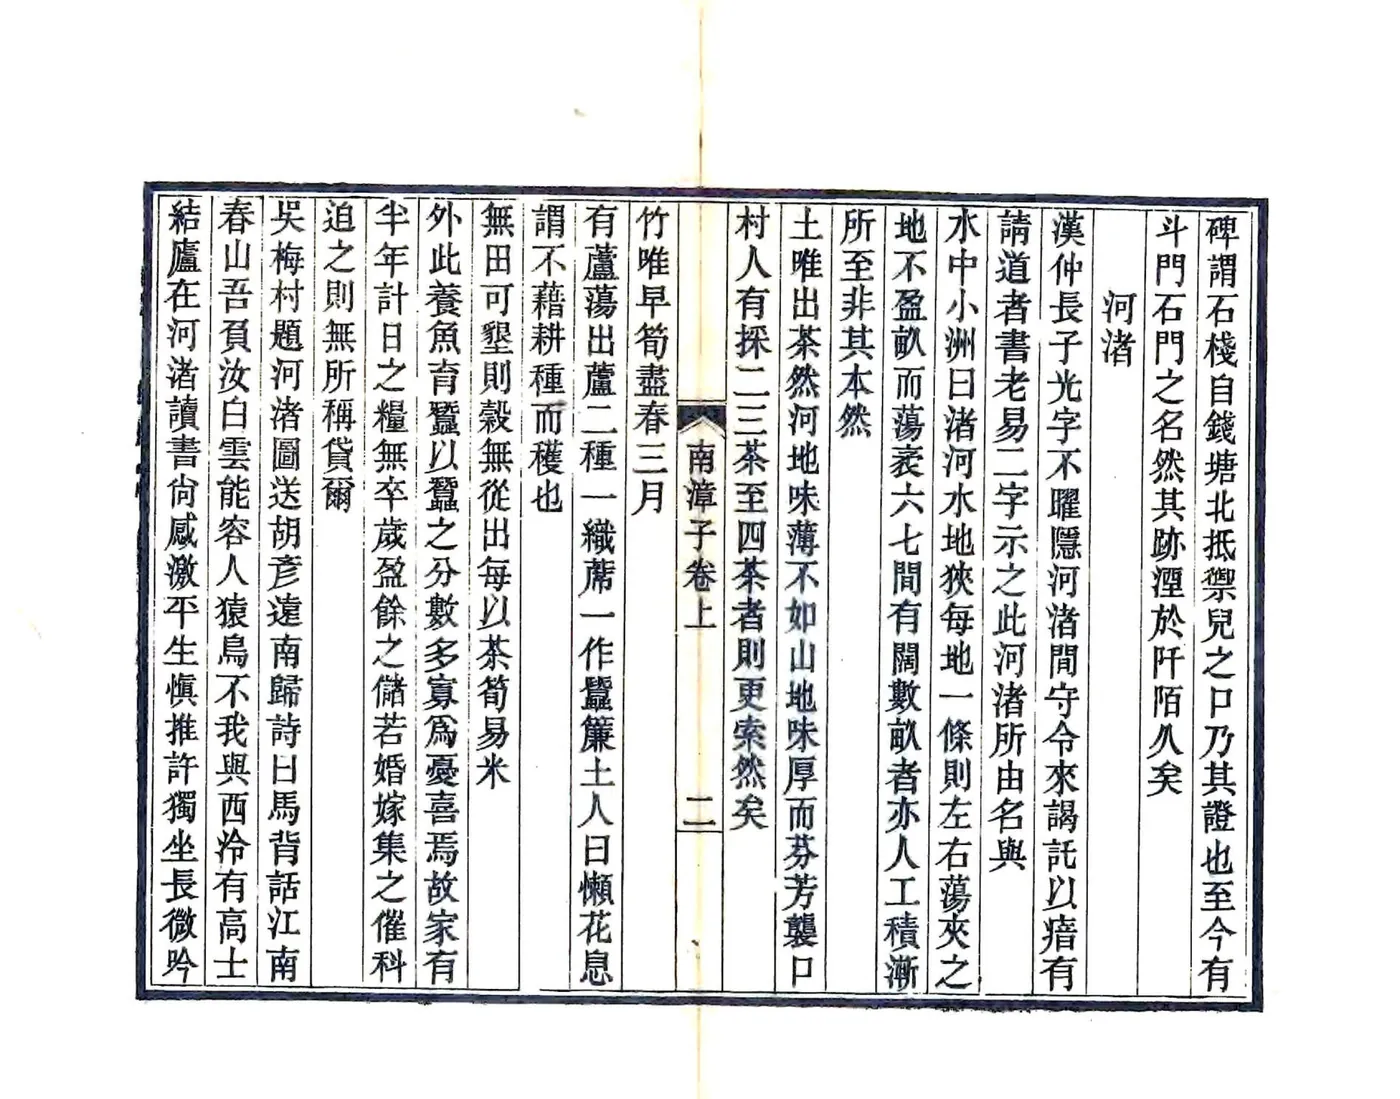 碑謂石棧自錢塘北抵禦兒之口乃其證也至今有
斗門石門之名然其跡湮於阡陌久矣
河渚
漢仲長子光字不曜隱河渚間守令來謁託以瘖有
請道者書老易二字示之此河渚所由名與
水中小洲曰渚河水地狹每地一條則左右蕩夾之
地不盈畝而蕩袤六七間有闊數畝者亦人工積漸
所至非其本然
土唯出茶然河地味薄不如山地味厚而芬芳襲口
村人有採二三茶至四茶者則更索然矣
南漳子卷上
二
竹唯早筍盡春三月
有蘆蕩出蘆二種一織蓆一作蠶簾土人曰懶花息
謂不藉耕種而穫也
無田可墾則穀無從出每以茶筍易米
外此養魚育蠶以蠶之分數多寡爲憂喜焉故家有
半年計日之糧無卒歲盈餘之儲若婚嫁集之催科
迫之則無所稱貸爾
吳梅村題河渚圖送胡彥遠南歸詩曰馬背話江南
春山吾負汝白雲能容人猿鳥不我與西泠有高士
結廬在河渚讀書尙感激平生愼推許獨坐長微吟